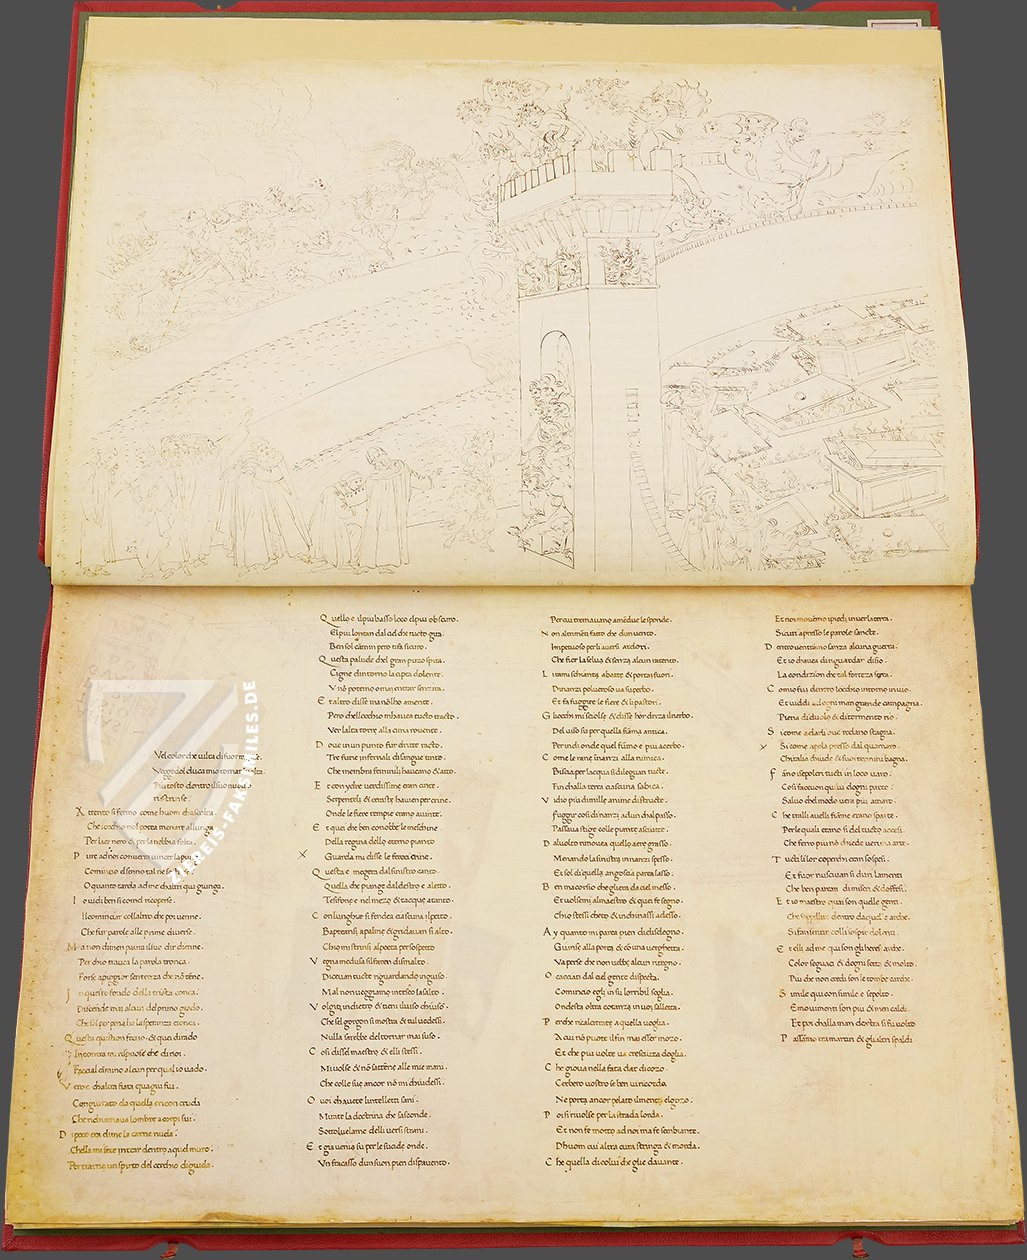 Vel color che vilta di fuor mi pinse.
Veggendol duca mio tornar in volta.
Piu tosto dentro il suo nuovo
ristrinse.
Attento si fermo come huom chascolta.
Che locchio nol potea menare allunga
Per laer nero & per la nebbia folta.
Pure ad noi converra vincer la punga
Comincio el senno tal ne
O quanto tarda ad me chaltri qui giunga.
Io vidi ben si comel ricoperse.
Il cominciar collaltro che poi venne.
Che fur parole alle prime diverse.
Ma non dimen paura il suo dir dienne.
Per chio traeva la parola tronca.
Forse apiggior sentenza che nō tēne.
In questo fondo della trista conca.
Discende mai alcun del primo grado.
Che sol per pena ha la speranza cionca.
Questa quistion fecio. & quei dirado
Incontra mi rispuose che di noi.
Faccial camino alcun per qual io vado.
Vero e chaltra fiata quagiu fui.
Congiurato da quella eriton cruda
Che richiamava lombre a corpi sui.
Di poco era di me la carne nuda.
Chella mi fece intrar dentro a quel muro.
Per trarne un spirto del cerchio di giuda.
Quello e il piu basso loco el piu obscuro.
El piu lontan dal ciel che tucto gira.
Ben so il camin pero ti fa sicuro.
Questa palude chel gran puzo spira.
Cigne dintorno la citta dolente.
V nō potemo omai entrar senzira.
Et altro disse ma nōllho amente.
Pero che llocchio mhavea tucto tracto.
Ver lalta torre alla cima rovente.
Dove in un punto fur dritte racto.
Tre furie infernali di sangue tinto.
Che membra feminili havieano & atto.
Et con ydre verdissime eran cinte.
Serpentelli & ceraste havien per crine.
Onde le fiere tempie erano avinte.
Et quei che ben conobbe le meschine
Della regina dello eterno pianto
Guarda mi disse le feroci erine.
Questa e megera dal sinistro canto.
Quella che piange dal destro e aletto.
Tesifone e nel mezo & tacque atanto.
Con lunghie si fendea ciascuna il pecto.
Bapteansi a palme & gridavan si alto.
Chio mi strinsi al poeta per sospecto
Vegna medusa sil farem di smalto.
Dicevan tucte riguardando ingiuso.
Mal non veggiamo inteseo lassalto.
Volgiti indietro & tien il viso chiuso.
Che sel gorgon si mostra & tul vedessi.
Nulla sarebbe del tornar mai suso.
Cosi dissel maestro & elli stessi.
Mi volse & nō sattēne alle mie mani.
Che colle sue ancor nō mi chiudessi.
O voi chavete lintelletti sani.
Mirate la doctrina che sasconde.
Sotto il velame delli versi strani.
Et gia venia su per le sucide onde.
Un fracasso dun suon pien di spavento.
Per cui tremavano amēdue le sponde.
Non altrimēti facto che dun vento.
Impetuoso per li aversi ardori.
Che fier la selva & senza alcun ratento.
Li rami schianta abatte & porta i fuori.
Dinanzi polveroso va superbo.
Et fa fuggire le fiere & li pastori.
Gliocchi mi sciolse & disse hor drizza il nerbo.
Del viso su per quella fiama antica.
Per indi onde quel fūmo e piu acerbo.
Come le rane inanzi alla nimica.
Biscia per lacqua si dileguan tucte.
Fin challa terra ciascuna sabica.
Vidio piu di mille anime distructe.
Fuggir cosi dinanzi ad un chal passo.
Passava stige colle piante asciutte.
Dal volto rimovea quello aere grasso.
Menando la sinistra innanzi spesso.
Et sol di quella angoscia parea lasso.
Ben macorsio chegliera da ciel messo.
Et volsemi al maestro & quei fe segno.
Chio stessi cheto & inchinassi adesso.
Ay quanto mi parea pien di disdegno.
Giunse alla porta & cō una verghetta.
Va perse che non vebbe alcun ritegno.
O cacciati dal ciel gente dispecta.
Comincio egli in su lorribil soglia.
Ondesta oltra cotanza in voi salletta.
Perche ricalcitrate a quella voglia.
A cui nō puote il fin mai esser mozo.
Et che piu volte va cresciuta doglia.
Che giova nella fata dar di cozo.
Cerbero vostro se ben vi ricorda.
Ne porta ancor pelato il mento elgozo.
Poi si rivolse per la strada lorda.
Et non fe motto ad noi ma fe sembiante.
Dhuom cui altra cura stringa & morda.
Che quella di colui che glie davante.
Et noi movēmo i piedi inver la terra.
Sicuri apresso le parole sancte.
Dentro ventrāmo sanza alcuna guerra.
Et io chavea di riguardar disio.
La condizion che tal forteza serra.
Comio fui dentro locchio intorno invio.
Et viddi ad ogni man grande campagna.
Piena di duolo & di tormento rio.
Si come ad arli ove rodano stagna.
Si come a pola presso dal quarnaro
Chitalia chiude & suoi termini bagna.
Fāno i sepolcri tucti in loco varo.
Cosi facevon quivi dogni parte.
Salvo chel modo vera piu amaro.
Che tralli avelli fiāme erano sparte.
Per le quali erano si del tucto accesi.
Che ferro piu nō chiede veruna arte.
Tucti li lor coperchi eran sospesi.
Et fuor nuscivan si duri lamenti
Che ben parean di miseri & doffesi.
Et io maestro quai son quelle genti.
Che sepellite dentro da quelle arche.
Si fan sentir colli sospir dolenti.
Et elli ad me qui son gli heresiarche.
Color seguaci & dogni setta & molto.
Piu che non credi son le tombe carche.
Simile qui con simile e sepolto.
Et monimenti son piu & men caldi.
Et poi challa man dextra si fu volto
Passāmo tra martiri & gli altri spaldi
ZIEREIS-FAKSIMILES.DE